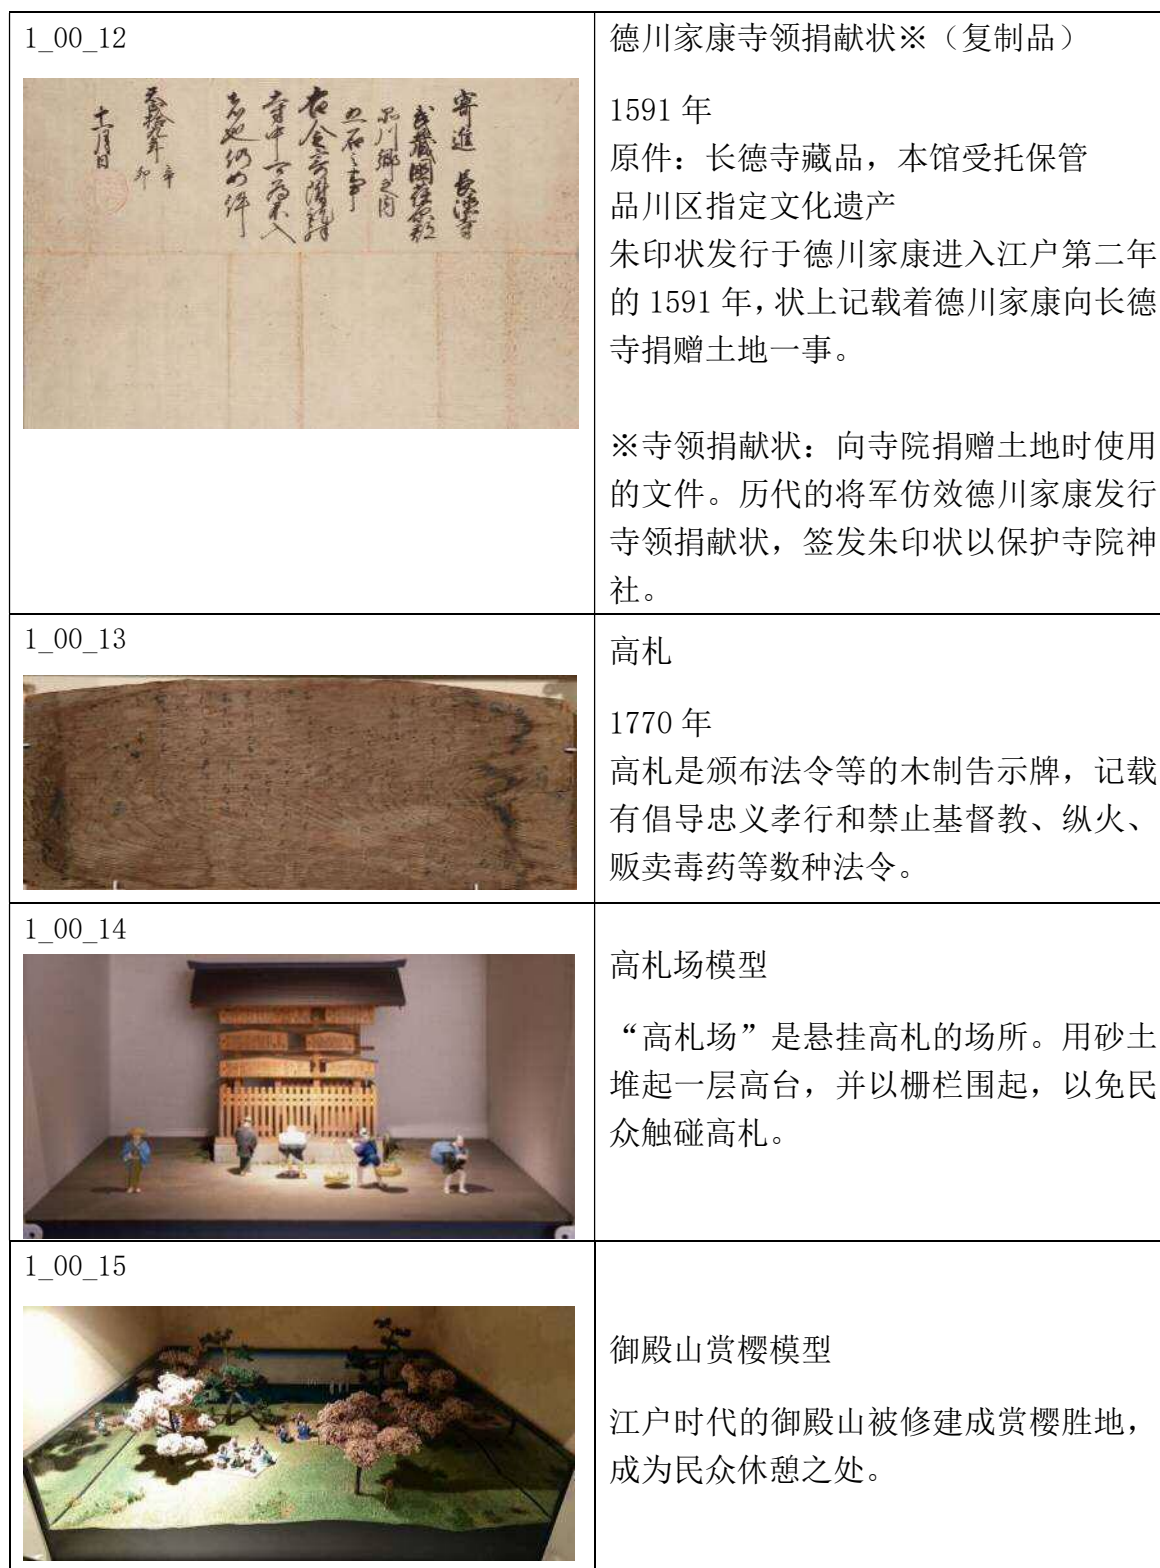 1_00_12
寄進 長徳寺
武蔵國荏原郡
品川郷之内
五石之事
右令寄附訖
寺中可為不入
者也仍如件
天正拾九年辛卯
十一月日
德川家康寺领捐献状※（复制品）
1591 年
原件：长德寺藏品，本馆受托保管
品川区指定文化遗产
朱印状发行于德川家康进入江户第二年
的 1591 年，状上记载着德川家康向长德
寺捐赠土地一事。
※寺领捐献状：向寺院捐赠土地时使用
的文件。历代的将军仿效德川家康发行
寺领捐献状，签发朱印状以保护寺院神
社。
1_00_13
高札
1770 年
高札是颁布法令等的木制告示牌，记载
有倡导忠义孝行和禁止基督教、纵火、
贩卖毒药等数种法令。
1_00_14
高札场模型
“高札场”是悬挂高札的场所。用砂土
堆起一层高台，并以栅栏围起，以免民
众触碰高札。
1_00_15
御殿山赏樱模型
江户时代的御殿山被修建成赏樱胜地，
成为民众休憩之处。